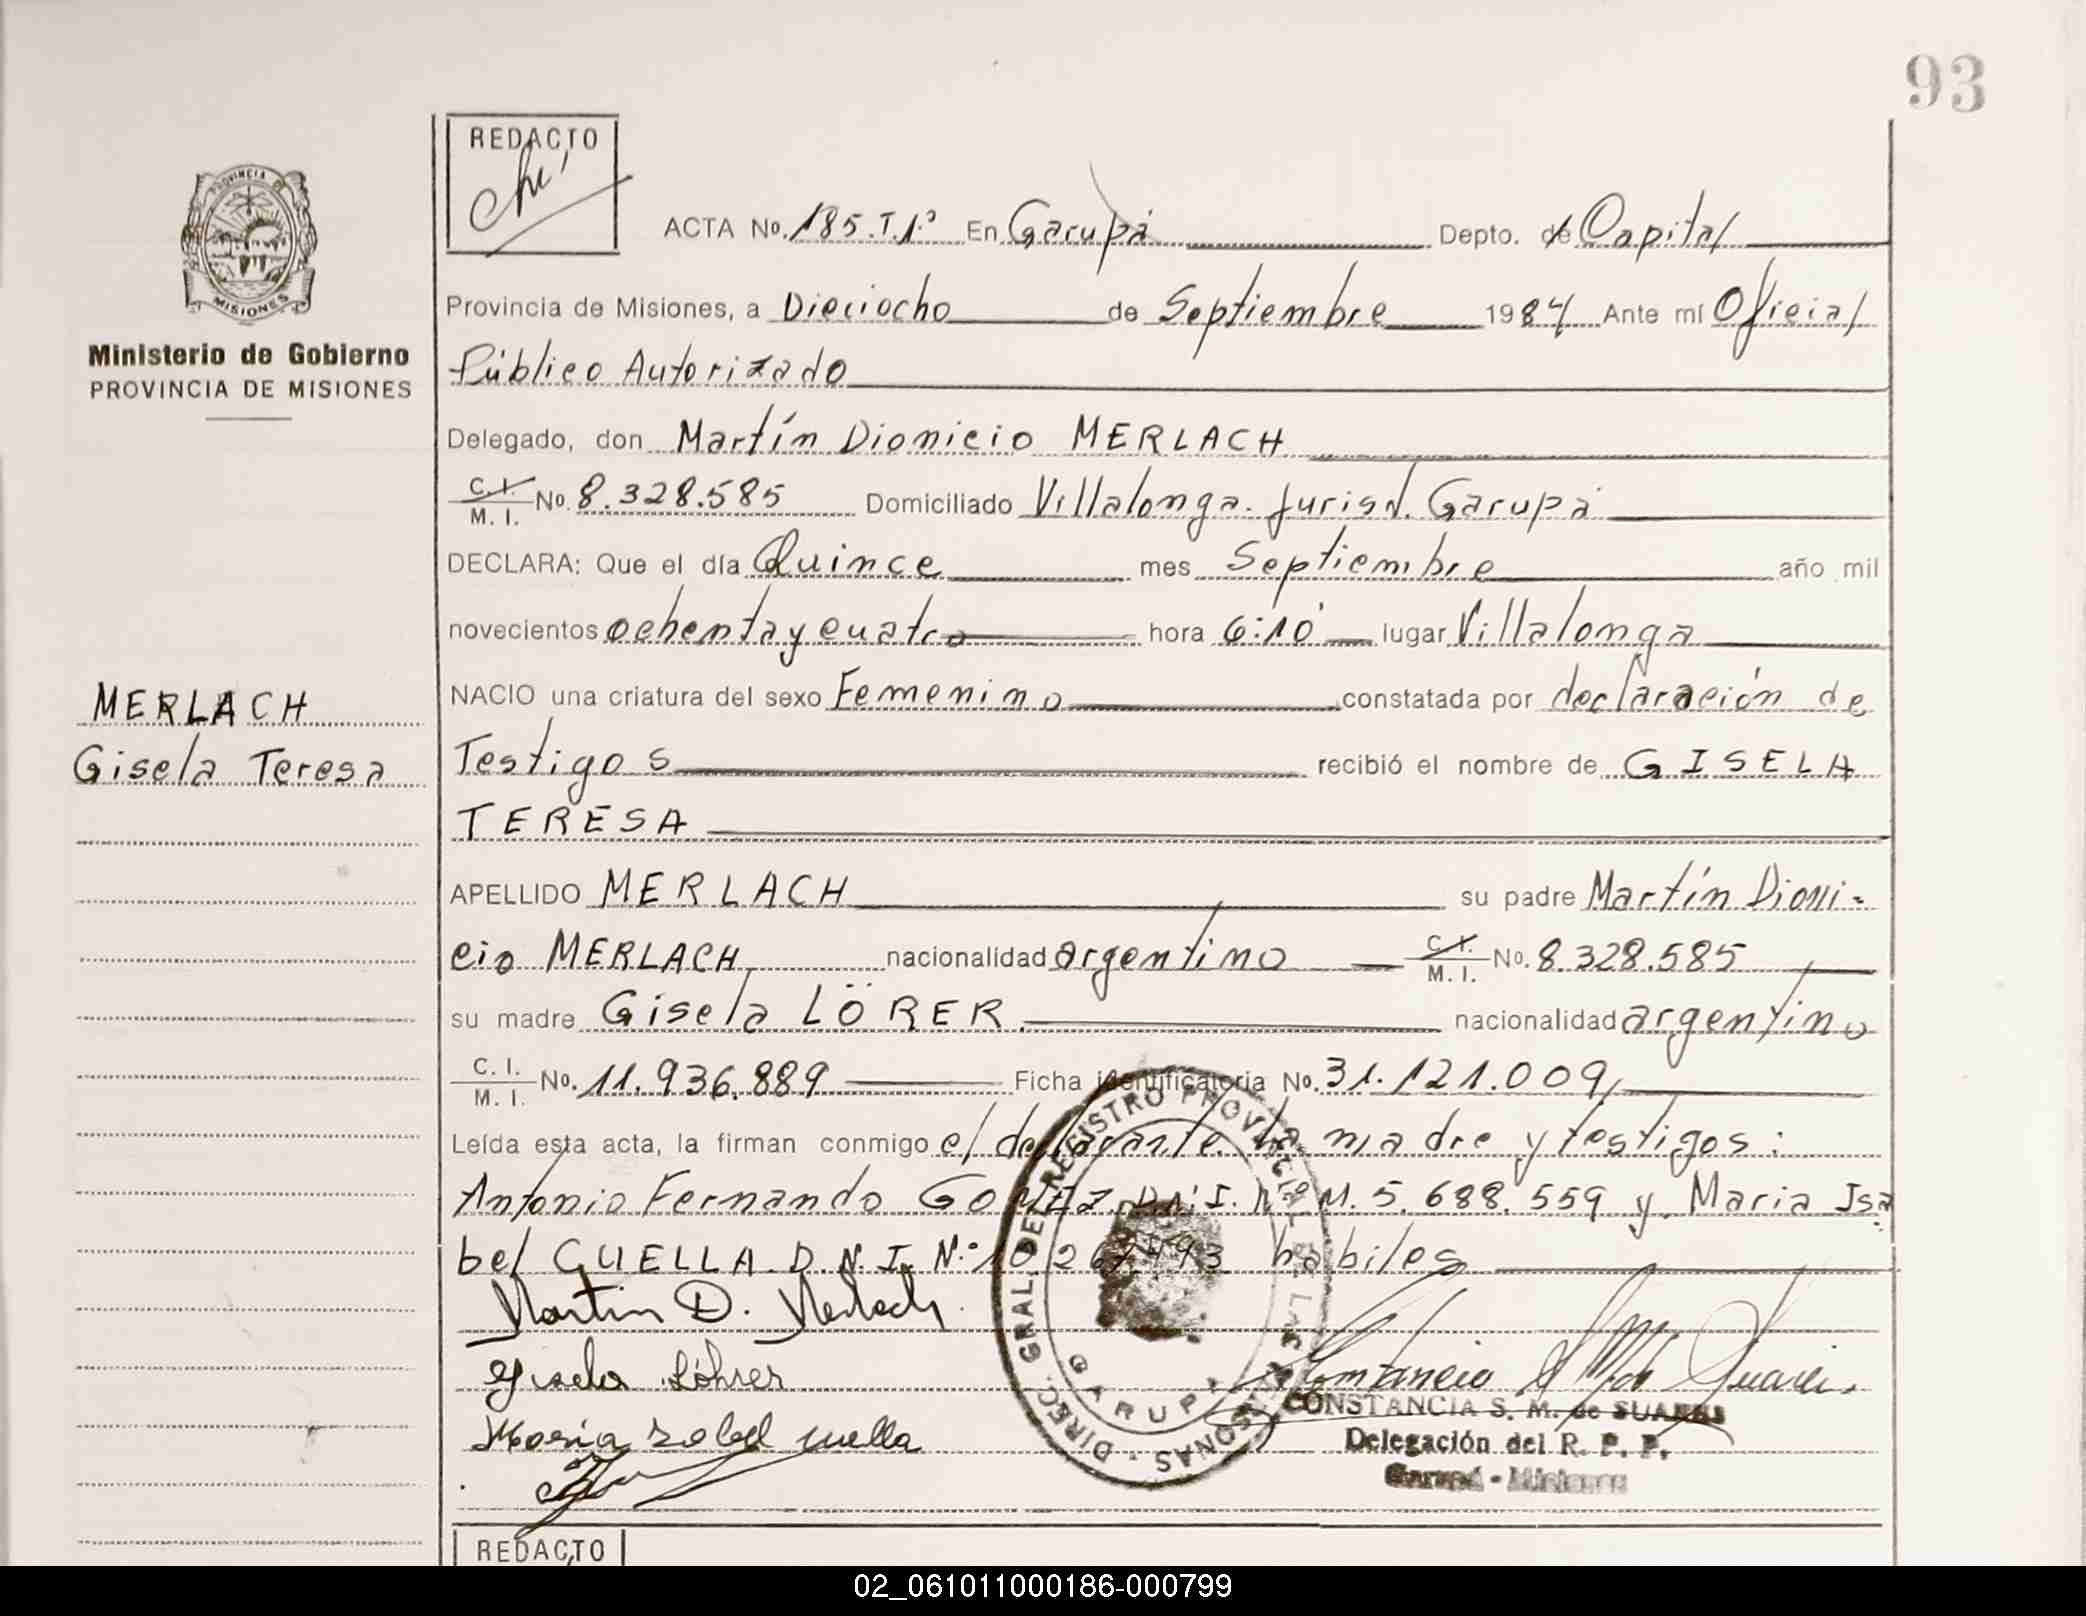 93
REDACTO
ACTA No. 185.T.1º En Garupá Depto. de Capital
PROVINCIA DE
MISIONES
Provincia de Misiones, a Dieciocho de Septiembre 1984 Ante mí Oficial
Ministerio de Gobierno
PROVINCIA DE MISIONES
Público Autorizado
Delegado, don Martín Dionicio MERLACH
C.I. M.I. No. 8.328.585 Domiciliado Villalonga. Jurisd. Garupá
DECLARA: Que el día Quince mes Septiembre año mil
novecientos ochenta y cuatro hora 6:10 lugar Villalonga
MERLACH
Gisela Teresa
NACIO una criatura del sexo Femenino constatada por declaración de
Testigos recibió el nombre de GISELA
TERESA
APELLIDO MERLACH su padre Martín Dioni-
cio MERLACH nacionalidad argentino C.I. M.I. No. 8.328.585
su madre Gisela LÖRER nacionalidad argentino
C.I. M.I. No. 11.936.889 Ficha identificatoria No. 31.121.009
Leída esta acta, la firman conmigo el declarante, la madre y testigos:
Antonio Fernando GOMEZ D.N.I. N° M. 5.688.559 y Maria Isa
bel CUELLA D.N.I. N° 10 267.493 habiles
Martin D. Merlach.
Gisela Löhrer
Maria Isabel Cuella
DIREC. GRAL. DEL REGISTRO PROVINCIAL DE LAS PERSONAS
GARUPA
CONSTANCIA S. M. de SUAREZ
Delegación del R. P. P.
Garupá - Misiones
REDACTO
02_061011000186-000799